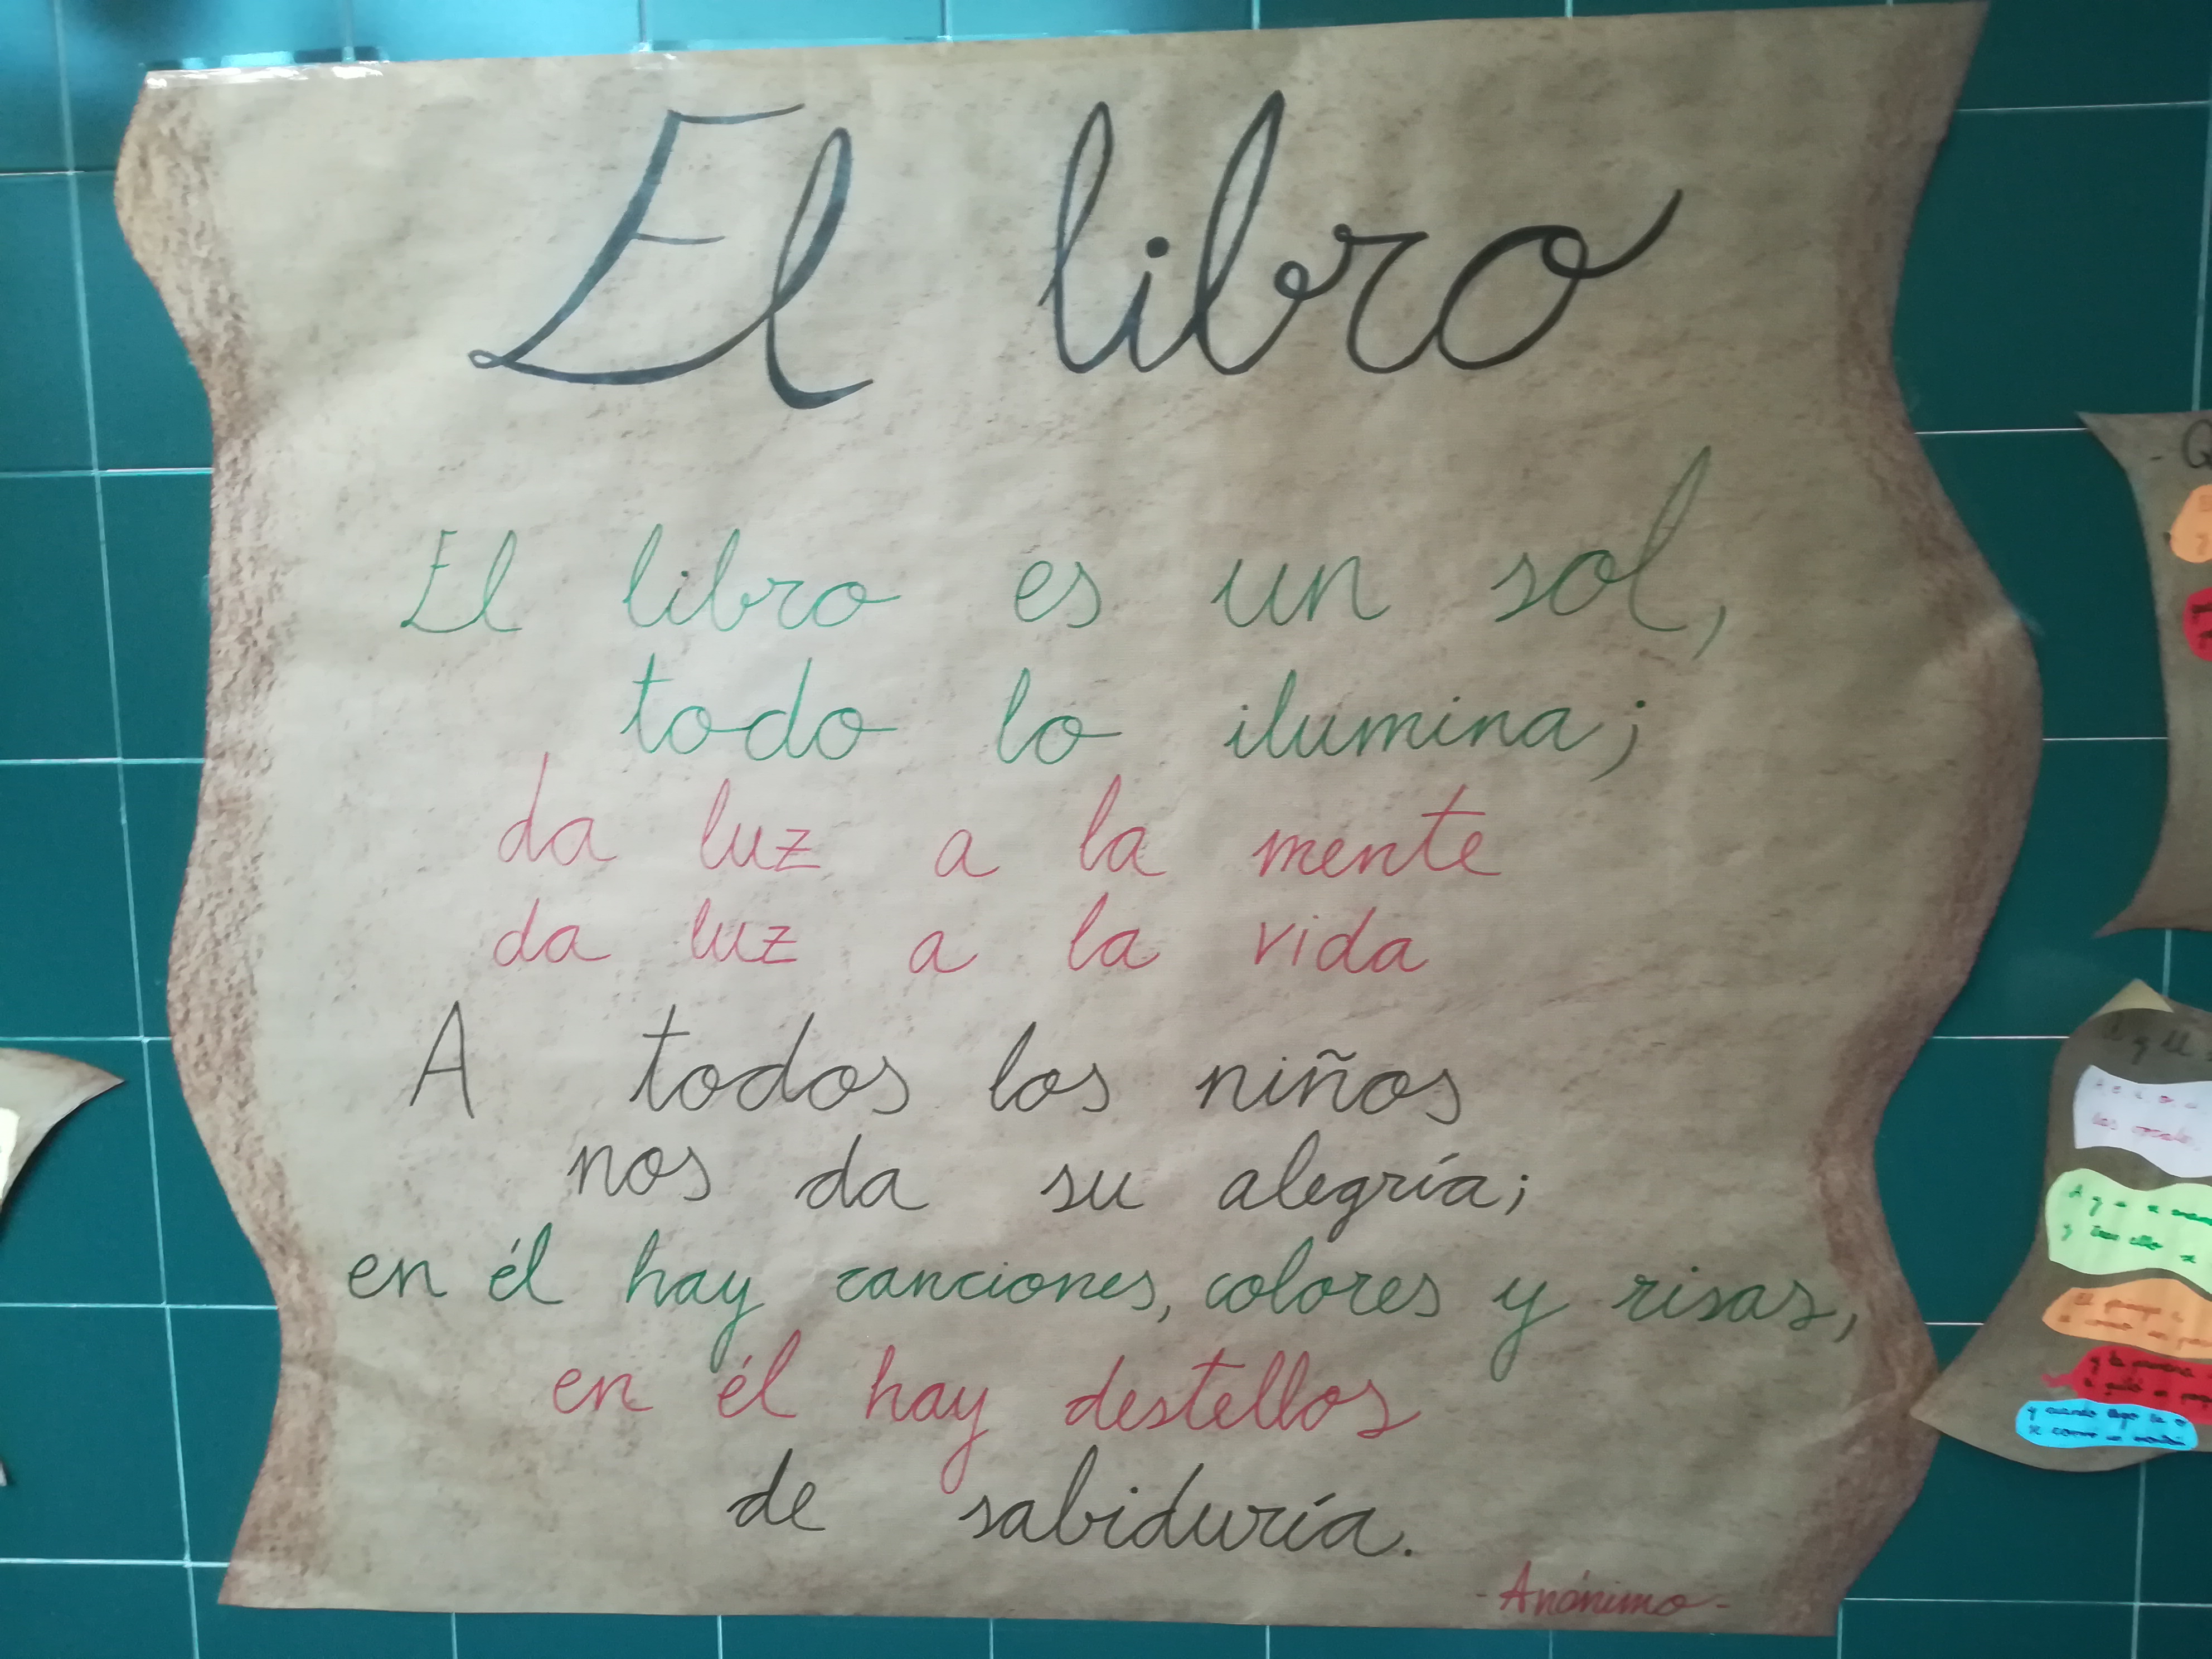 El libro
El libro es un sol,
todo lo ilumina;
da luz a la mente
da luz a la vida
A todos los niños
nos da su alegría;
en él hay canciones, colores y risas,
en él hay destellos
de sabiduría.
- Anónimo -